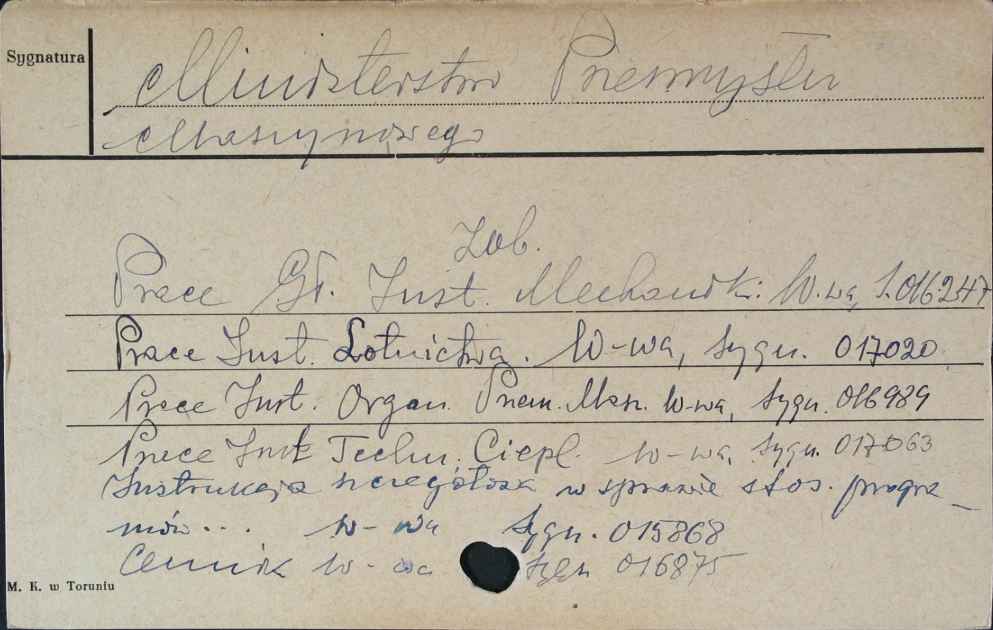 Sygnatura
Ministerstwo Przemysłu
Maszynowego
Zob.
Prace Gł. Inst. Mechaniki: W-wa, S. 016247
Prace Inst. Lotnictwa. W-wa, sygn. 017020
Prace Inst. Organ. Przem. Masz. W-wa, sygn. 016989
Prace Inst. Techn. Ciepl. W-wa, sygn. 017063
Instrukcja szczegółowa w sprawie stos. progra-
mów... W-wa sygn. 015868
Cennik W-wa Sygn 016875
M. K. w Toruniu